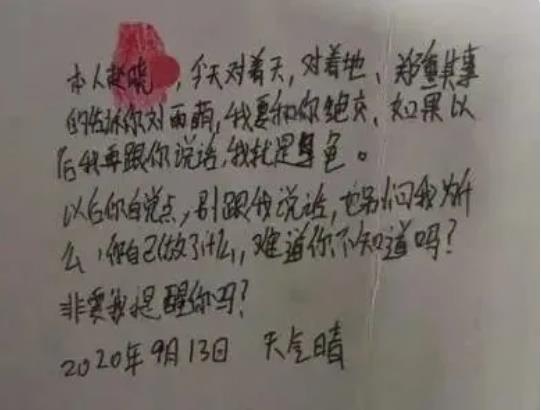 本人赵晓，今天对着天，对着地、郑重其事
的告诉你刘雨萌，我要和你绝交，如果以
后我再跟你说话，我就是龟。
以后你自觉点，别跟我说话，也别问我为什
么，你自己做了什么，难道你不知道吗？
非要我提醒你吗？
2020年9月13日 天气晴